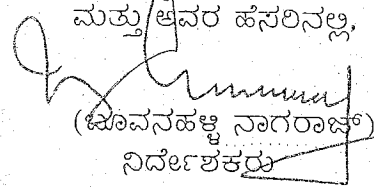 ಮತ್ತು ಅವರ ಹೆಸರಿನಲ್ಲಿ,
(ಟೂವನಹಳ್ಳಿ ನಾಗರಾಜ್)
ನಿರ್ದೇಶಕರು